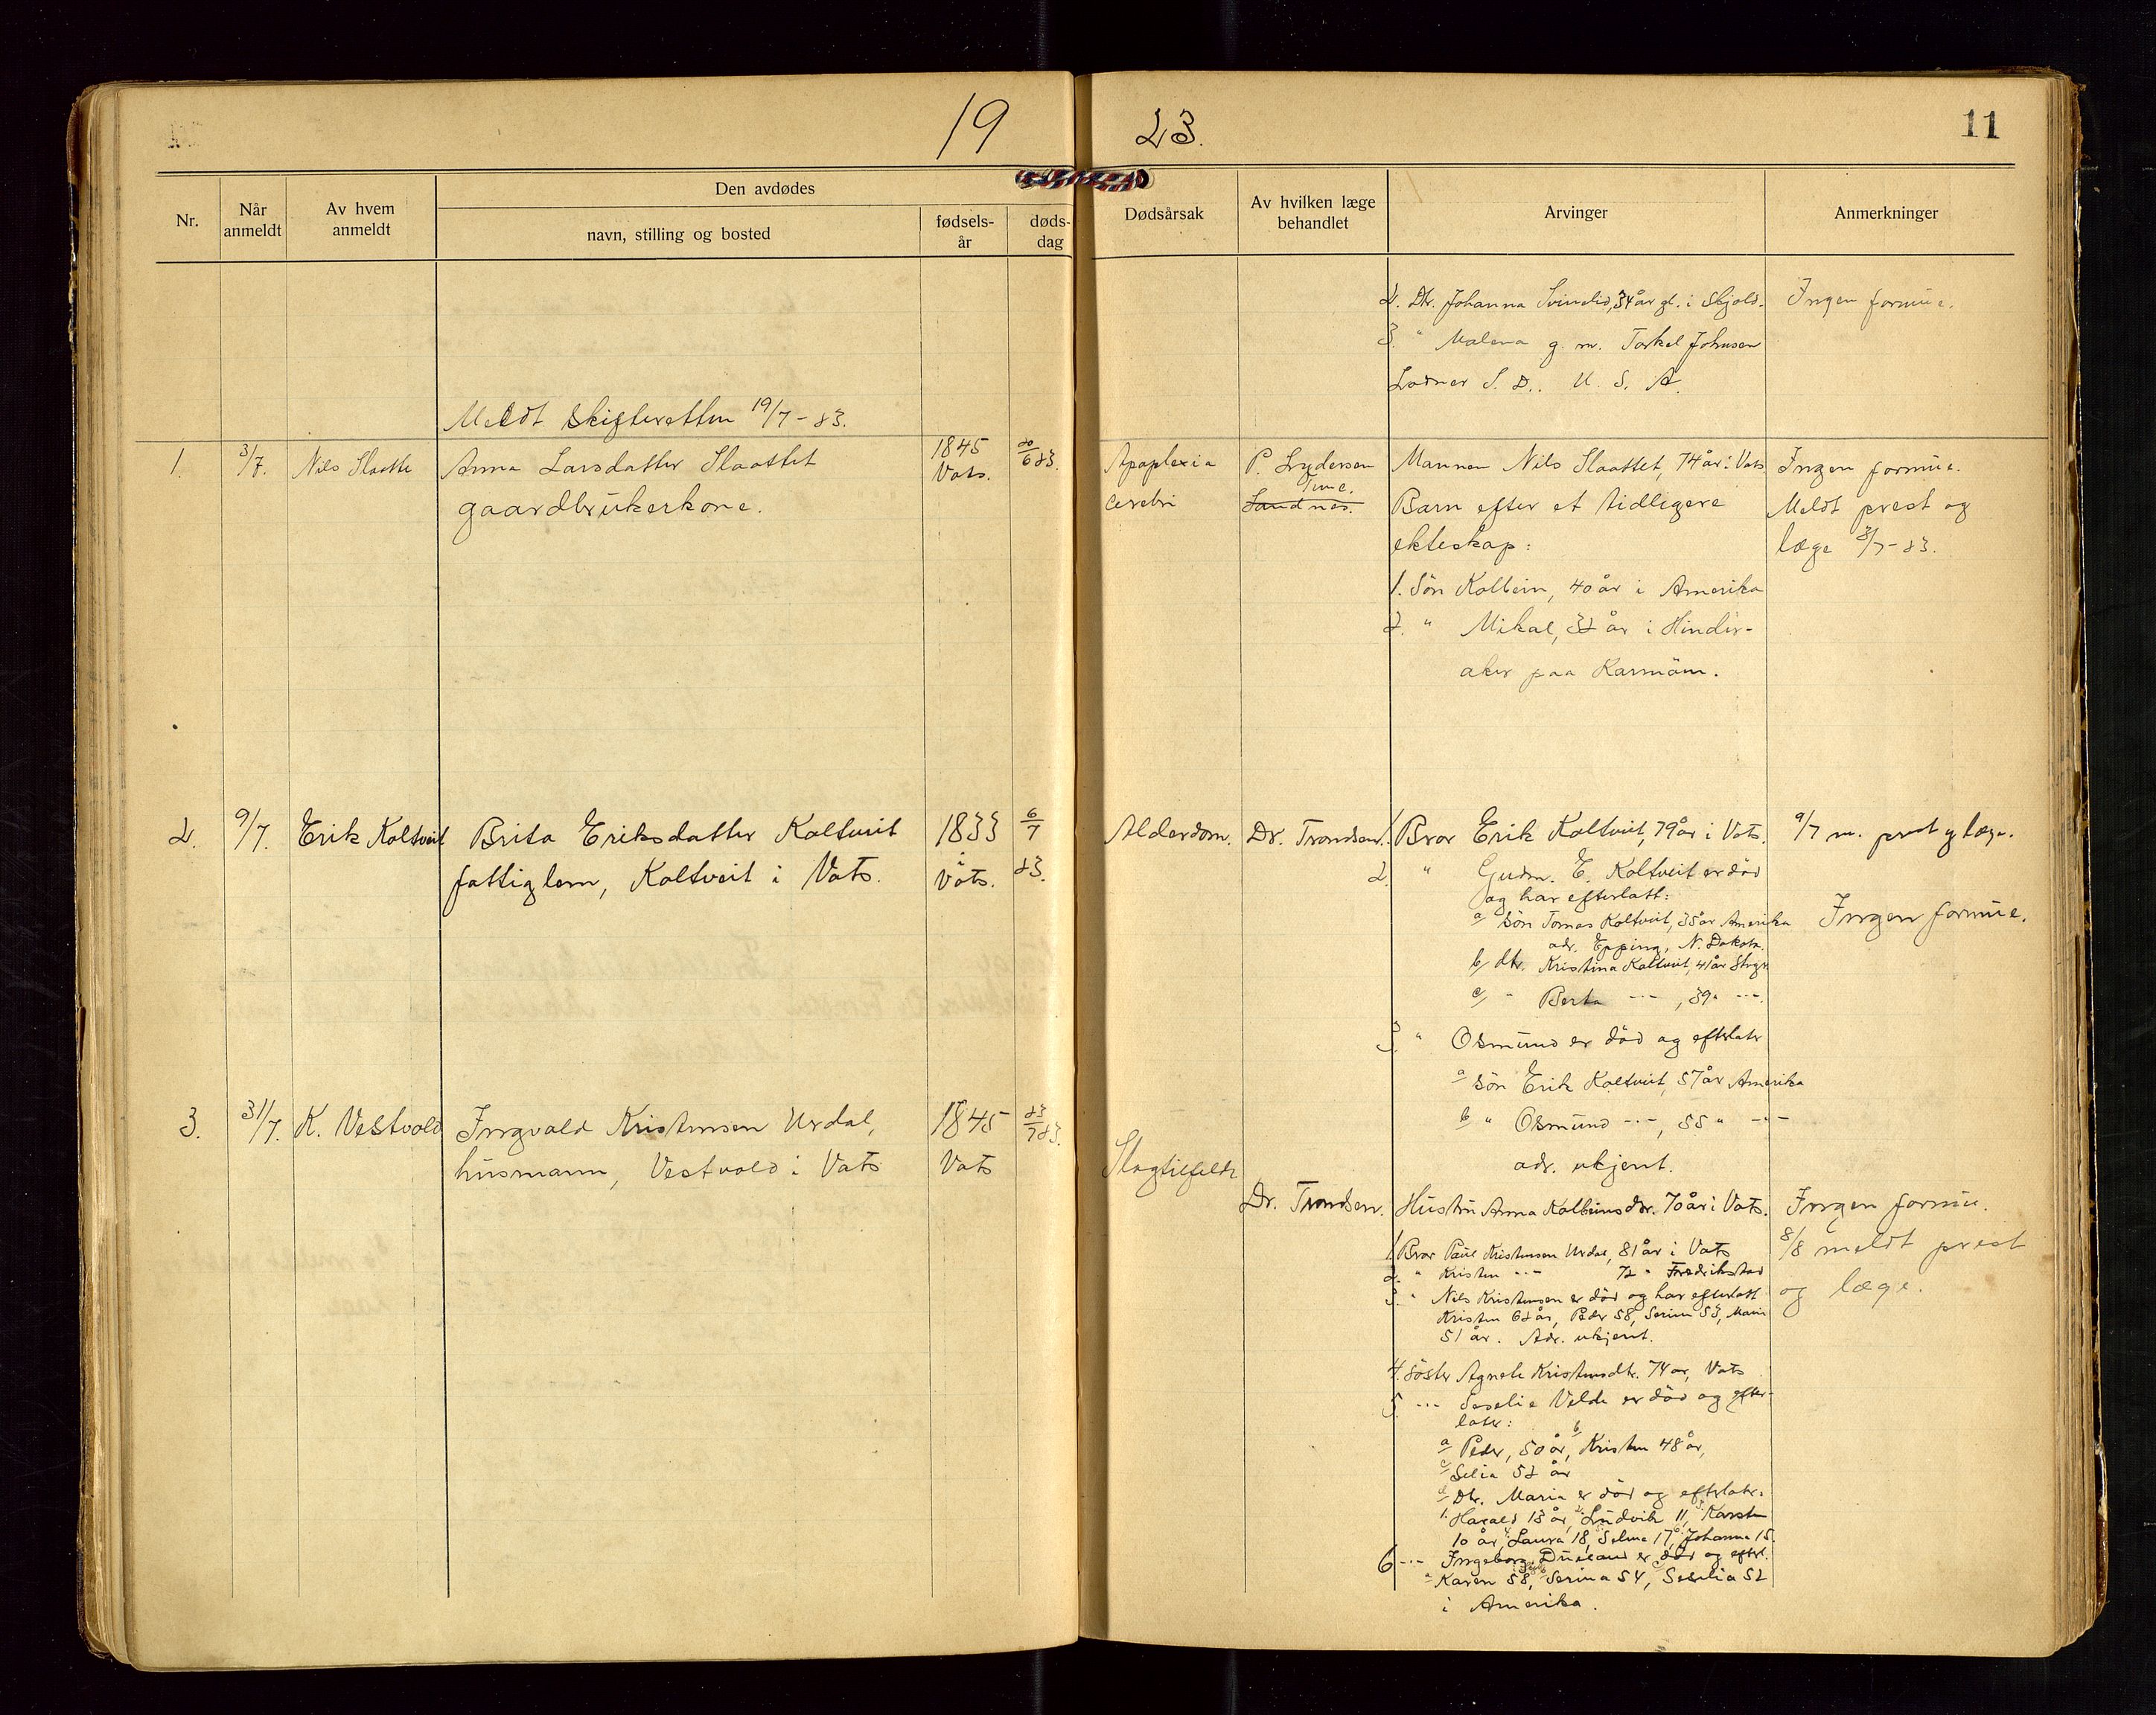 19 23.
11
Nr.
Når anmeldt
Av hvem anmeldt
Den avdødes
navn, stilling og bosted
fødsels-år
døds-dag
Dødsårsak
Av hvilken læge behandlet
Arvinger
Anmerkninger
2. Dtr. Johanna Svindlid, 34 år gl. i Skjold.
3. " Malena g. m. Torkel Johnsen
S. D.. U. S. A.
Ingen formue.
Meldt skifteretten 19/7-23.
1. 3/7. Nils Slaatte
Anna Larsdatter Slaattet
gaardbrukerkone.
1845
Vats.
20/6 23.
Apoplexia
cerebri
P. Lydersen
Time.
Sandnes.
Mannen Nils Slaattet, 74 år i Vats
Barn efter et tidligere
ekteskap:
1. Sön Kolbein, 40 år i Amerika
2. " Mikal, 32 år i Hinder-
aker paa Karmöen.
Ingen formue.
Meldt prest og
læge 3/7-23.
2. 9/7. Erik Koltveit
Brita Eriksdatter Koltveit
fattiglem, Koltveit i Vats.
1833
Vats.
6/7
23.
Alderdom.
Dr. Trondsen.
1. Bror Erik Koltveit, 79 år i Vats.
2. " Gudm. E. Koltveit er död
og har efterlatt:
a/ Sön Tomas Koltveit, 35 år Amerika
adr. Epping, N. Dakota.
b/ dtr. Kristina Koltveit, 41 år
c/ " Berta -"-, 39 " -"-
3. " Osmund er död og efterlater
a/ Sön Erik Koltveit, 57 år Amerika
b/ " Osmund -"-, 55 " -"-
adr. ukjent.
9/7 m. prest og læge.
Ingen formue.
3. 31/7. K. Vestvold
Ingvald Kristensen Urdal,
husmann, Vestvold i Vats
1845
Vats
23/7 23.
Slagtilfelde
Dr. Trondsen.
Hustru Anna Kolbeinsdtr. 70 år i Vats.
1. Bror Paul Kristensen Urdal, 81 år i Vats
2. " Kristen -"- 72 " Fredrikstad
3. " Nils Kristensen er död og har efterlatt
Kristen 62 år, Peder 58, Serine 53, Marie
51 år. Adr. ukjent.
4. Söster Agnete Kristensdtr. 74 år, Vats
5. -"- Seselie Velde er död og efter-
later:
a/ Peder, 50 år, b/ Kristen 48 år,
c/ Selia 52 år
d/ Dtr. Maria er död og efterlater:
1. Harald 13 år, 2. Ludvik 11, 3. Karsten
10 år, 4. Laura 18, 5. Selma 17, 6. Johanna 15.
6. -"- Ingeborg er död og efterl.
a/ Karen 58, b/ Serina 54, c/ Seselia 52
i Amerika.
Ingen formue.
8/8 meldt prest
og læge.